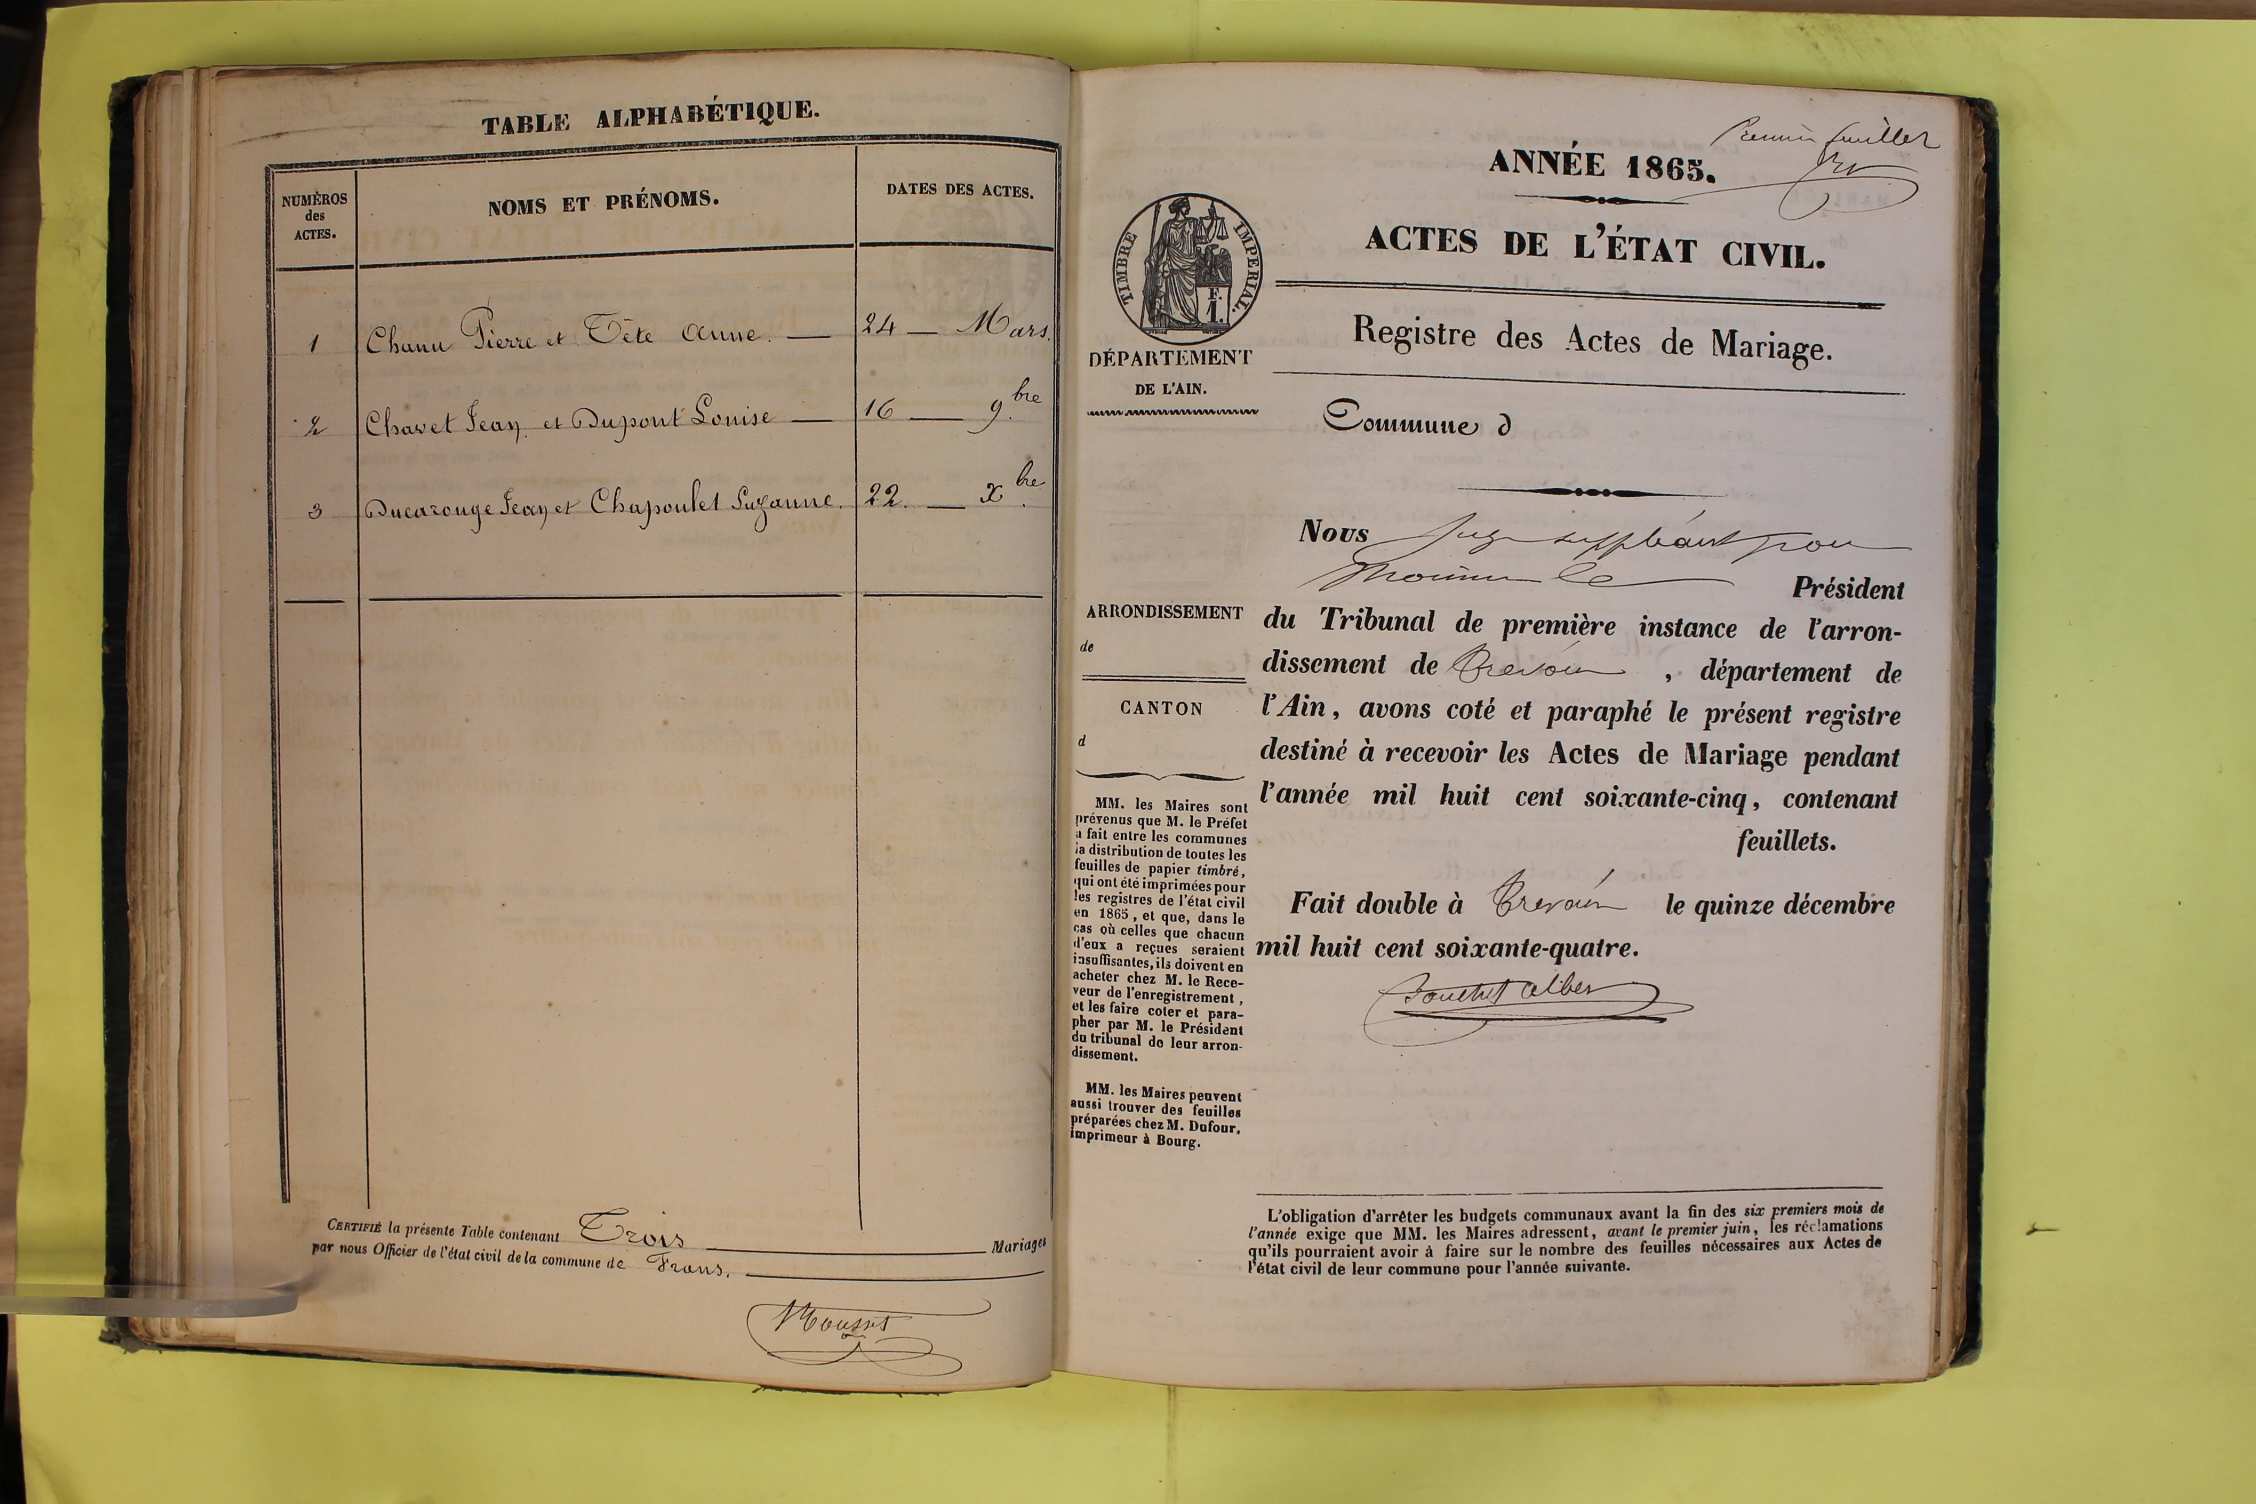 TABLE ALPHABÉTIQUE.
NUMÉROS
des
ACTES.
NOMS ET PRÉNOMS.
DATES DES ACTES.
1 Chanu Pierre et Tête Anne. — 24 — Mars.
2 Chavet Jean et Dupont Louise — 16 — 9.bre
3 Ducarouge Jean et Chapoulet Suzanne. 22. — Xbre.
CERTIFIÉ la présente Table contenant Trois Mariages
par nous Officier de l'état civil de la commune de Frans.
Mousset
Premier feuillet
ANNÉE 1865.
ACTES DE L'ÉTAT CIVIL.
TIMBRE IMPERIAL.
F.
1.
Registre des Actes de Mariage.
DÉPARTEMENT
DE L'AIN.
Commune d
Nous Juge suppléant pour
le Président
du Tribunal de première instance de l'arron-
dissement de Trévoux , département de
l'Ain, avons coté et paraphé le présent registre
destiné à recevoir les Actes de Mariage pendant
l'année mil huit cent soixante-cinq, contenant
feuillets.
Fait double à Trévoux le quinze décembre
mil huit cent soixante-quatre.
ARRONDISSEMENT
de
CANTON
d
MM. les Maires sont
prévenus que M. le Préfet
a fait entre les communes
la distribution de toutes les
feuilles de papier timbré,
qui ont été imprimées pour
les registres de l'état civil
en 1865, et que, dans le
cas où celles que chacun
d'eux a reçues seraient
insuffisantes, ils doivent en
acheter chez M. le Rece-
veur de l'enregistrement,
et les faire coter et para-
pher par M. le Président
du tribunal de leur arron-
dissement.
MM. les Maires peuvent
aussi trouver des feuilles
préparées chez M. Dufour,
imprimeur à Bourg.
L'obligation d'arrêter les budgets communaux avant la fin des six premiers mois de
l'année exige que MM. les Maires adressent, avant le premier juin, les réclamations
qu'ils pourraient avoir à faire sur le nombre des feuilles nécessaires aux Actes de
l'état civil de leur commune pour l'année suivante.